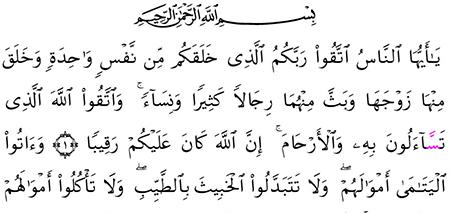 بِسْمِ ٱللَّهِ ٱلرَّحْمَٰنِ ٱلرَّحِيمِ
يَٰٓأَيُّهَا ٱلنَّاسُ ٱتَّقُوا۟ رَبَّكُمُ ٱلَّذِى خَلَقَكُم مِّن نَّفْسٍ وَٰحِدَةٍ وَخَلَقَ
مِنْهَا زَوْجَهَا وَبَثَّ مِنْهُمَا رِجَالًا كَثِيرًا وَنِسَآءً ۚ وَٱتَّقُوا۟ ٱللَّهَ ٱلَّذِى
تَسَّآءَلُونَ بِهِۦ وَٱلْأَرْحَامَ ۚ إِنَّ ٱللَّهَ كَانَ عَلَيْكُمْ رَقِيبًا ۝١ وَءَاتُوا۟
ٱلْيَتَٰمَىٰٓ أَمْوَٰلَهُمْ ۖ وَلَا تَتَبَدَّلُوا۟ ٱلْخَبِيثَ بِٱلطَّيِّبِ ۖ وَلَا تَأْكُلُوٓا۟ أَمْوَٰلَهُمْ